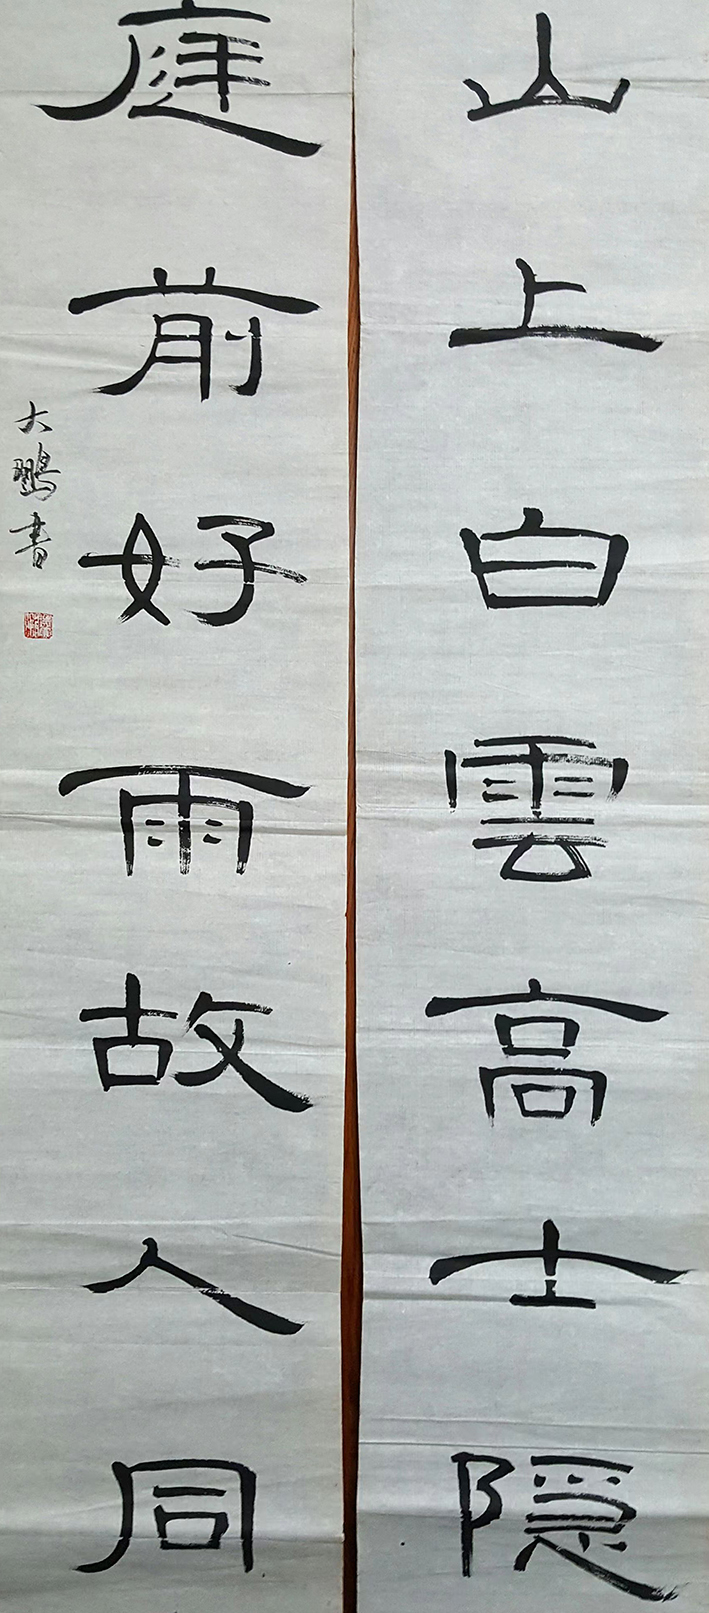 山上白雲高士隱
庭前好雨故人同
大鵬書